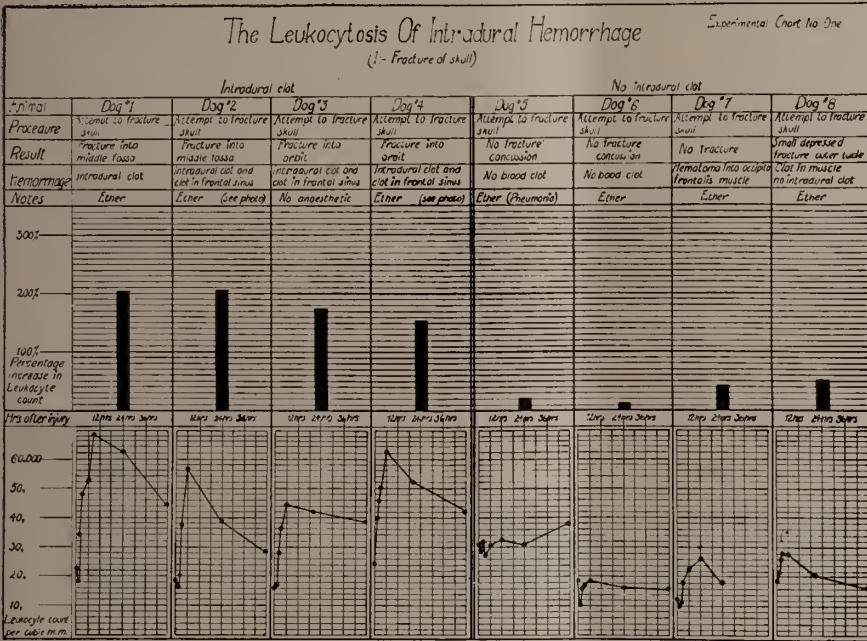 Experimental Chart No One
The Leukocytosis Of Intradural Hemorrhage
(1:- Fracture of skull)
Intradural clot
No intradural clot
Animal Dog #1 Dog #2 Dog #3 Dog #4 Dog #5 Dog #6 Dog #7 Dog #8
Procedure Attempt to fracture skull Attempt to fracture skull Attempt to fracture skull Attempt to fracture skull Attempt to fracture skull Attempt to fracture skull Attempt to fracture skull Attempt to fracture skull
Result Fracture into middle fossa Fracture into middle fossa Fracture into orbit Fracture into orbit No fracture concussion No fracture concussion No fracture Small depressed fracture outer table
Hemorrhage Intradural clot Intradural clot and clot in frontal sinus Intradural clot and clot in frontal sinus Intradural clot and clot in frontal sinus No blood clot No blood clot Hematoma into occipito frontalis muscle Clot In muscle no intradural clot
Notes Ether Ether (see photo) No anaesthetic Ether (see photo) Ether (Pneumonia) Ether Ether Ether
300%
200%
100%
Percentage
increase in
Leukocyte
count
Hrs after injury 12hrs 24hrs 36hrs 12hrs 24hrs 36hrs 12hrs 24hrs 36hrs 12hrs 24hrs 36hrs 12hrs 24hrs 36hrs 12hrs 24hrs 36hrs 12hrs 24hrs 36hrs 12hrs 24hrs 36hrs
60.000
50.
40.
30.
20.
10.
Leukocyte count
per cubic m.m.